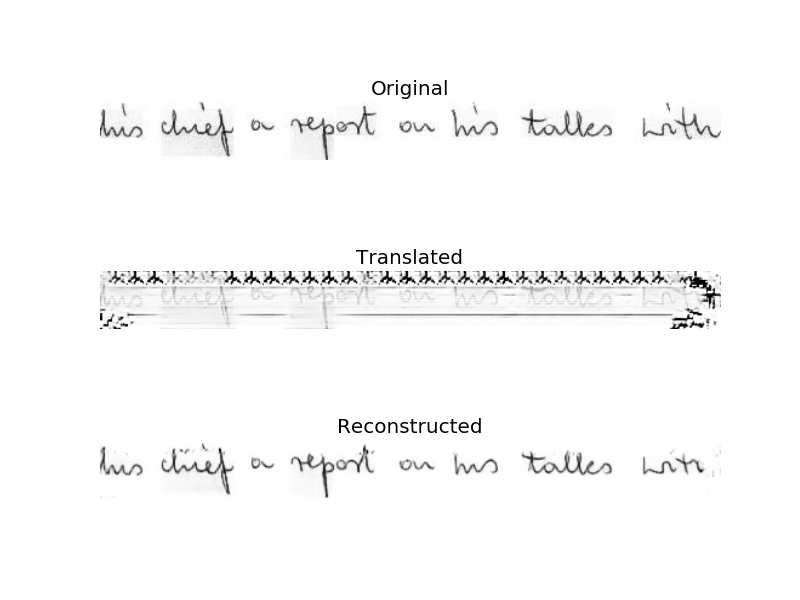 Original
his chief a report on his talks with
Translated
his chief a report on his talks
Reconstructed
his chief a report on his talks